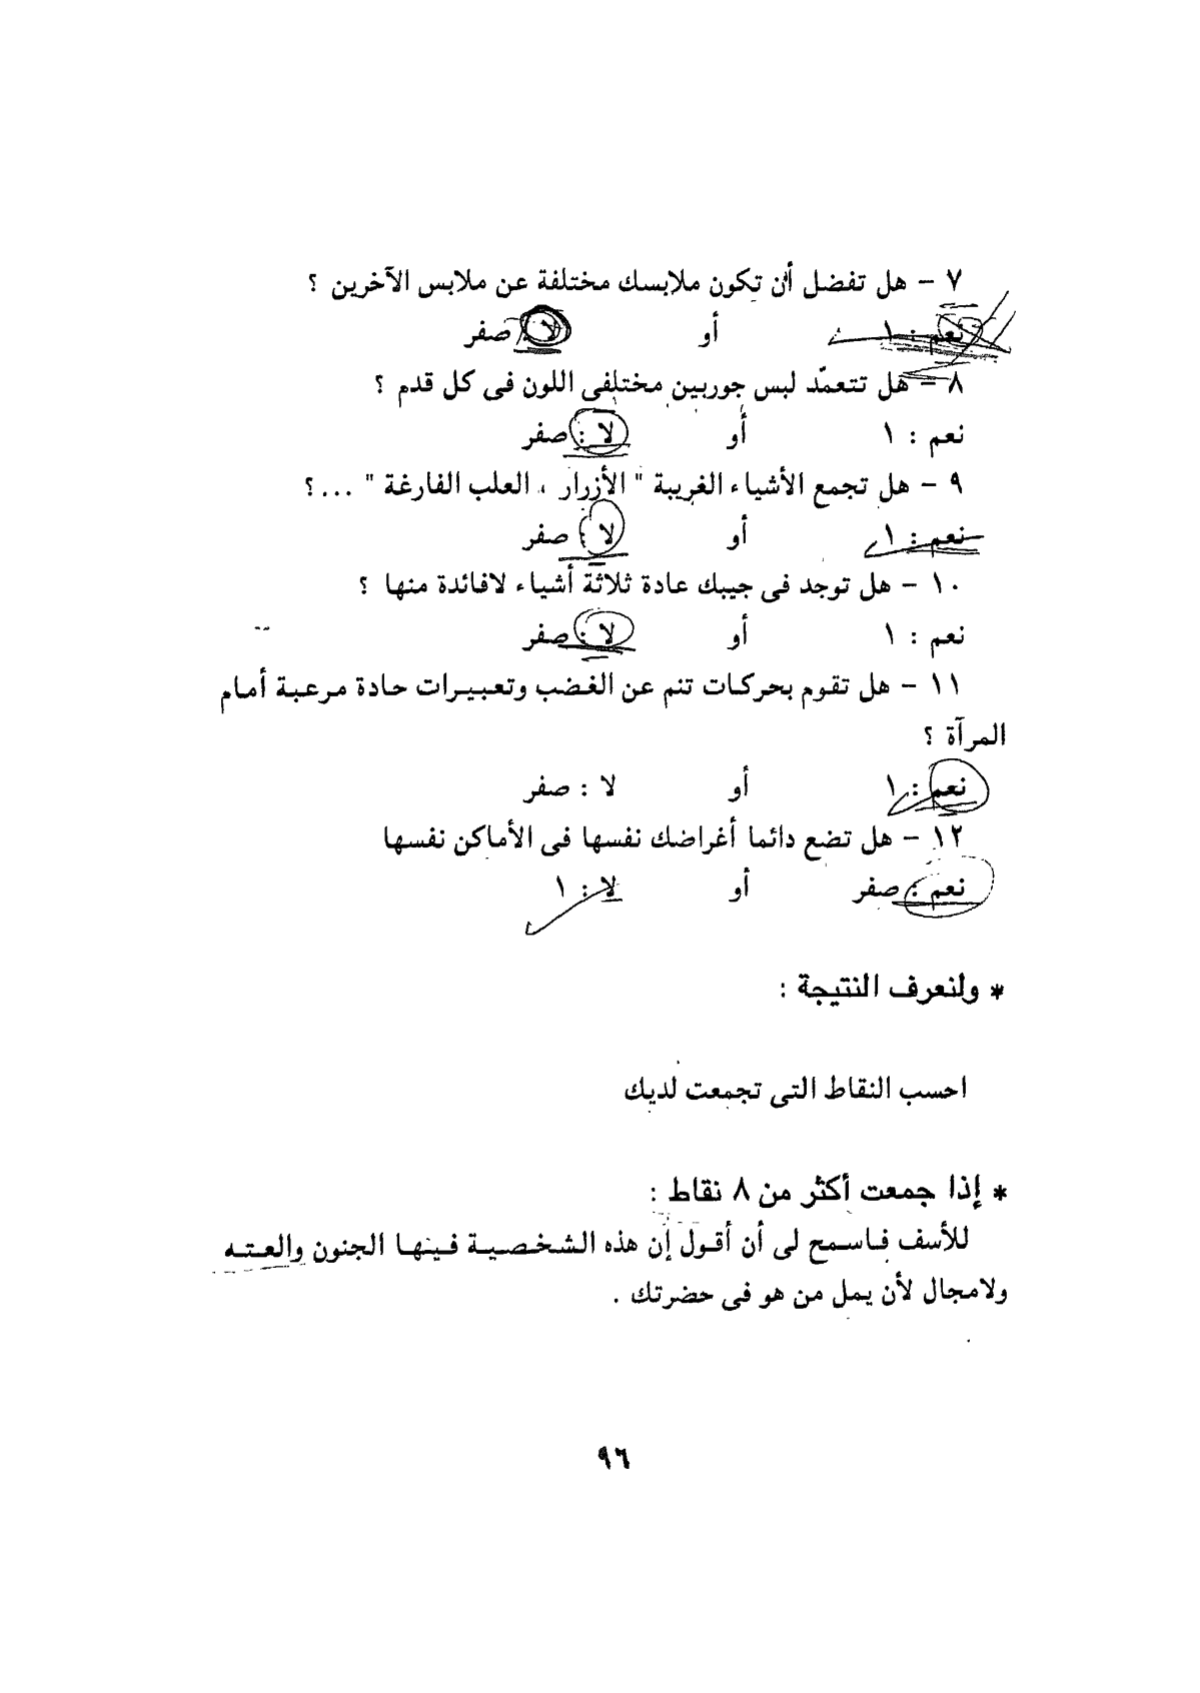 ٧ – هل تفضل أن تكون ملابسك مختلفة عن ملابس الآخرين ؟
نعم : ١ أو لا : صفر
٨ – هل تتعمّد لبس جوربين مختلفى اللون فى كل قدم ؟
نعم : ١ أو لا : صفر
٩ – هل تجمع الأشياء الغريبة " الأزرار ، العلب الفارغة " ... ؟
نعم : ١ أو لا : صفر
١٠ – هل توجد فى جيبك عادة ثلاثة أشياء لافائدة منها ؟
نعم : ١ أو لا : صفر
١١ – هل تقوم بحركات تنم عن الغضب وتعبيرات حادة مرعبة أمام
المرآة ؟
نعم : ١ أو لا : صفر
١٢ – هل تضع دائما أغراضك نفسها فى الأماكن نفسها
نعم : صفر أو لا : ١
* ولنعرف النتيجة :
احسب النقاط التى تجمعت لديك
* إذا جمعت أكثر من ٨ نقاط :
للأسف فاسمح لى أن أقول إن هذه الشخصية فينها الجنون والعته
ولامجال لأن يمل من هو فى حضرتك .
٩٦